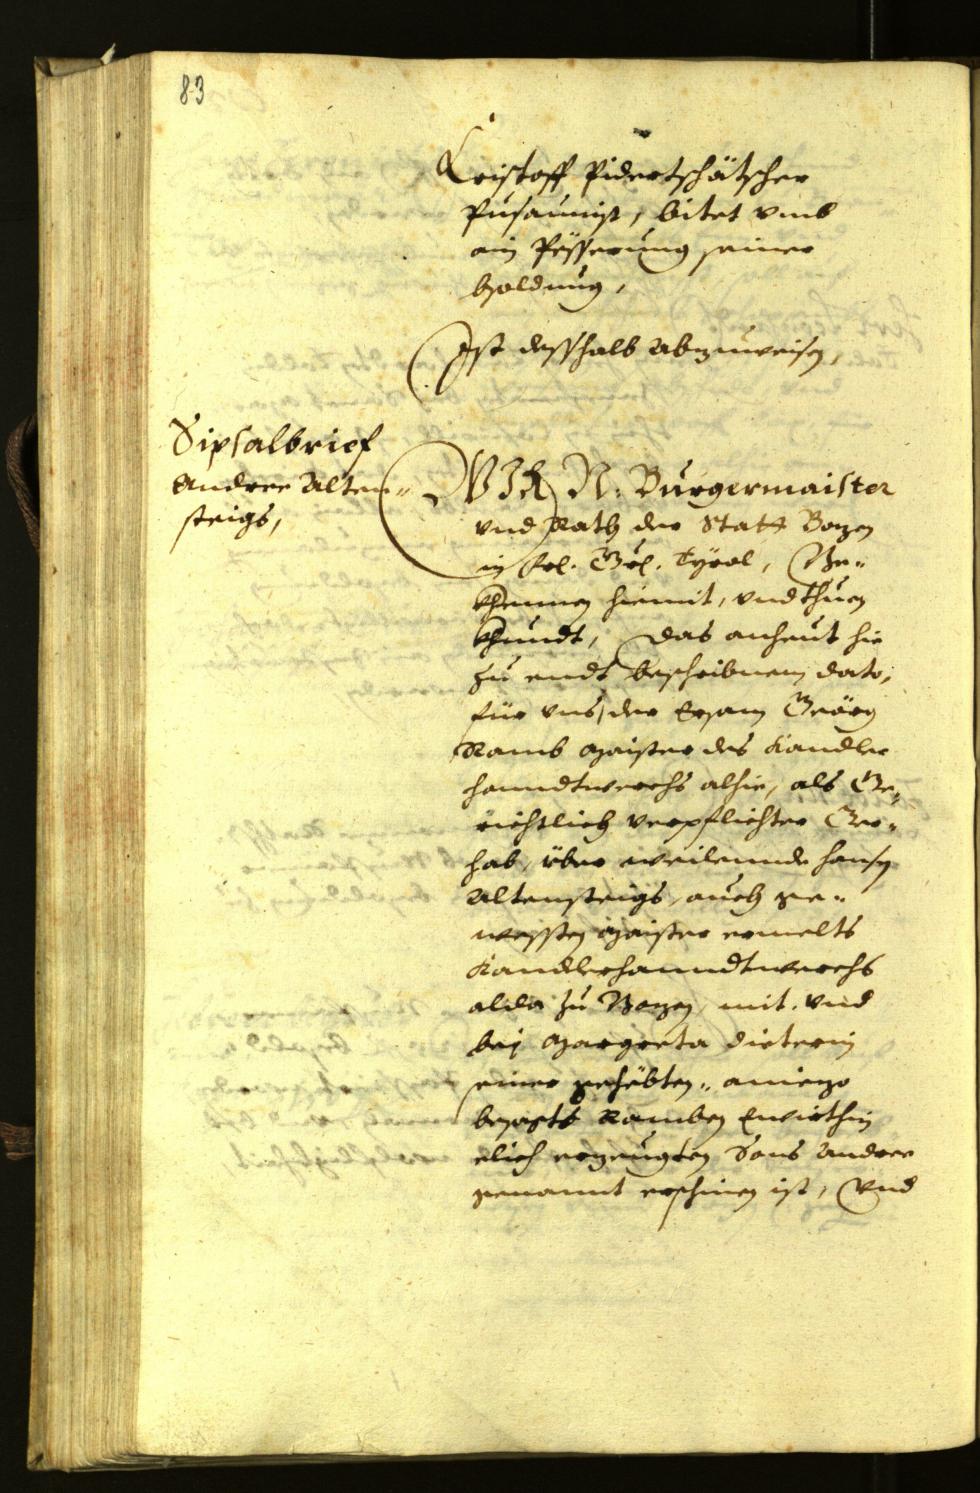 83
Cristoff Pidertschätscher
Pusaunist, bitet umb
ain Pesserung seiner
bsoldung,
Ist desshalb Abzuweisen,
Sipsalbrief
Andreen Alten-
steigs,
WIR N: Burgermaister
und Rath der Statt Bozen
in Frl. Grl. Tyrol, Be-
khennen hiemit, und thuen
khundt, Das anheut hie
zu endt beschribnem dato,
für uns, der Ersam Geörg
Ramb Maister des Kandler
handtwerchs alhie, als Ge-
richtlich verpflichter Ger-
hab, über weilennde Hansen
Altensteigs, auch ge-
westen Maister ermelts
Kandlerhanndtwerchs
alda zu Bozen, mit und
bei Margreta Dieterin
seiner gehebten, aniezo
besagts Ramben Ewirthin
elich erzeugten Sons Andree
genannt erschinen ist, Und